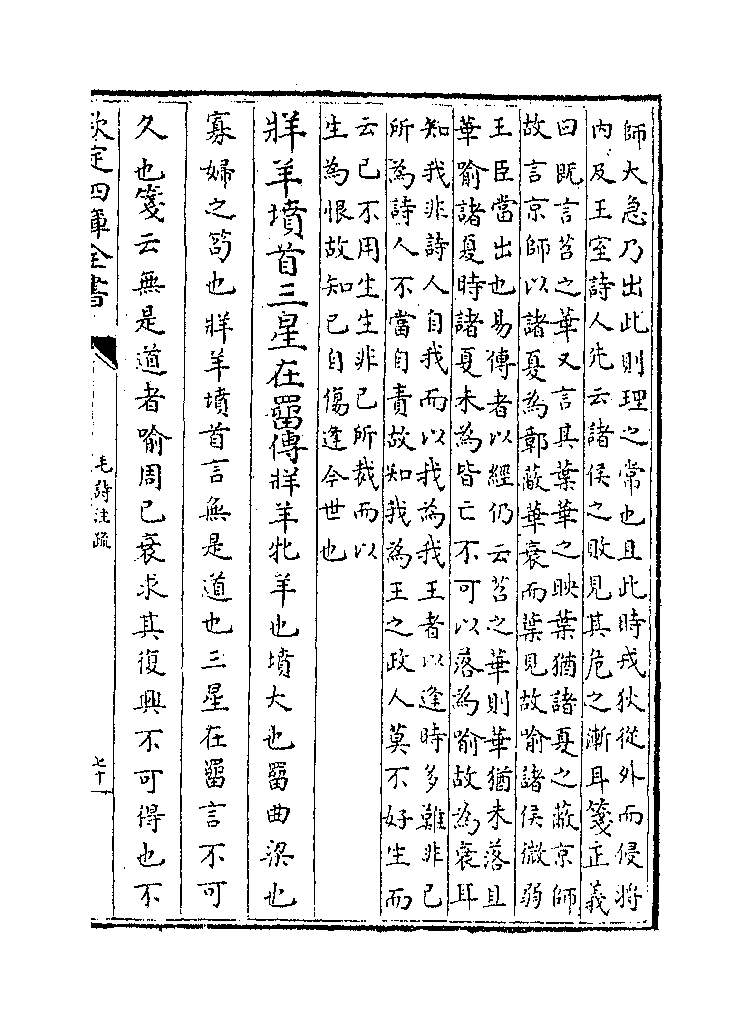 師大急乃出此則理之常也且此時戎狄從外而侵將
内及王室詩人先云諸侯之敗見其危之漸耳箋正義
曰既言苕之華又言其葉華之映葉猶諸夏之蔽京師
故言京師以諸夏為鄣蔽華衰而葉見故喻諸侯微弱
王臣當出也易傳者以經仍云苕之華則華猶未落且
華喻諸夏時諸夏未為皆亡不可以落為喻故為衰耳
知我非詩人自我而以我為我王者以逢時多難非已
所為詩人不當自責故知我為王之政人莫不好生而
云已不用生生非已所裁而以
生為恨故知已自傷逢今世也
牂羊墳首三星在罶傳牂羊牝羊也墳大也罶曲梁也
寡婦之笱也牂羊墳首言無是道也三星在罶言不可
久也箋云無是道者喻周已衰求其復興不可得也不
欽定四庫全書
毛詩注疏
七十一